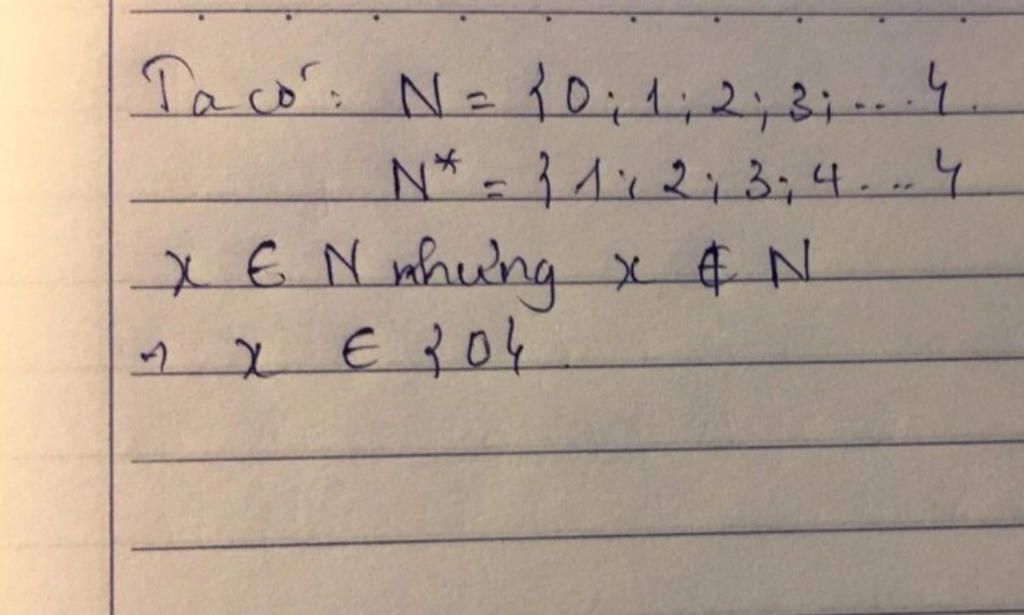 Ta có: N = {0; 1; 2; 3; ... }.
N* = {1; 2; 3; 4 ... }
x ∈ N nhưng x ∉ N
→ x ∈ {0}.